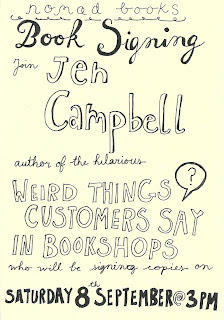 nomad books
Book Signing
Join Jen
Campbell
author of the hilarious
?
WEIRD THINGS
CUSTOMERS SAY
IN BOOKSHOPS
who will be signing copies on
SATURDAY 8th SEPTEMBER@3PM